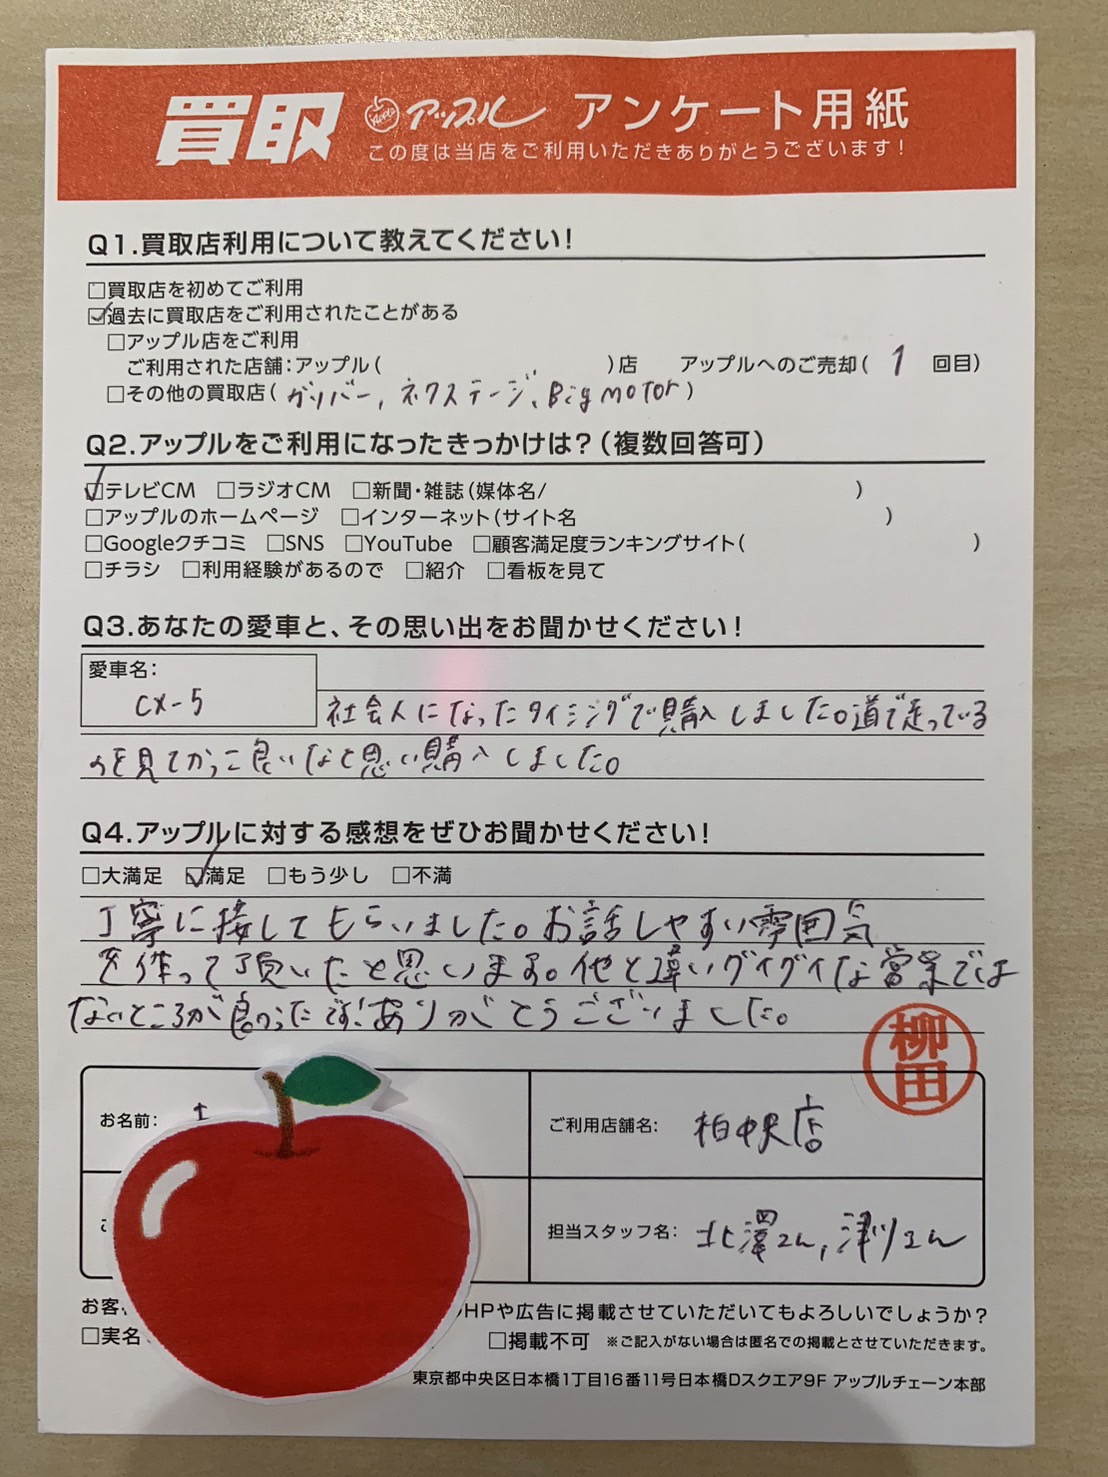 買取 アップル アンケート用紙
この度は当店をご利用いただきありがとうございます!
Q1.買取店利用について教えてください!
□買取店を初めてご利用
☑過去に買取店をご利用されたことがある
□アップル店をご利用
ご利用された店舗:アップル( )店 アップルへのご売却( 1 回目)
□その他の買取店( ガリバー, ネクステージ、Big motor )
Q2.アップルをご利用になったきっかけは?(複数回答可)
☑テレビCM □ラジオCM □新聞・雑誌(媒体名/ )
□アップルのホームページ □インターネット(サイト名 )
□Googleクチコミ □SNS □YouTube □顧客満足度ランキングサイト( )
□チラシ □利用経験があるので □紹介 □看板を見て
Q3.あなたの愛車と、その思い出をお聞かせください!
愛車名:
CX-5
社会人になったタイミングで購入しました。道で走っている
のを見てかっこ良いなと思い購入しました。
Q4.アップルに対する感想をぜひお聞かせください!
□大満足 ☑満足 □もう少し □不満
丁寧に接してもらいました。お話しやすい雰囲気
を作って頂いたと思います。他と違いグイグイな営業では
ないところが良かったです!ありがとうございました。
柳田
お名前:
ご利用店舗名: 柏中央店
担当スタッフ名: 北澤さん, 津川さん
お客
HPや広告に掲載させていただいてもよろしいでしょうか?
□実名 □掲載不可 ※ご記入がない場合は匿名での掲載とさせていただきます。
東京都中央区日本橋1丁目16番11号日本橋Dスクエア9F アップルチェーン本部